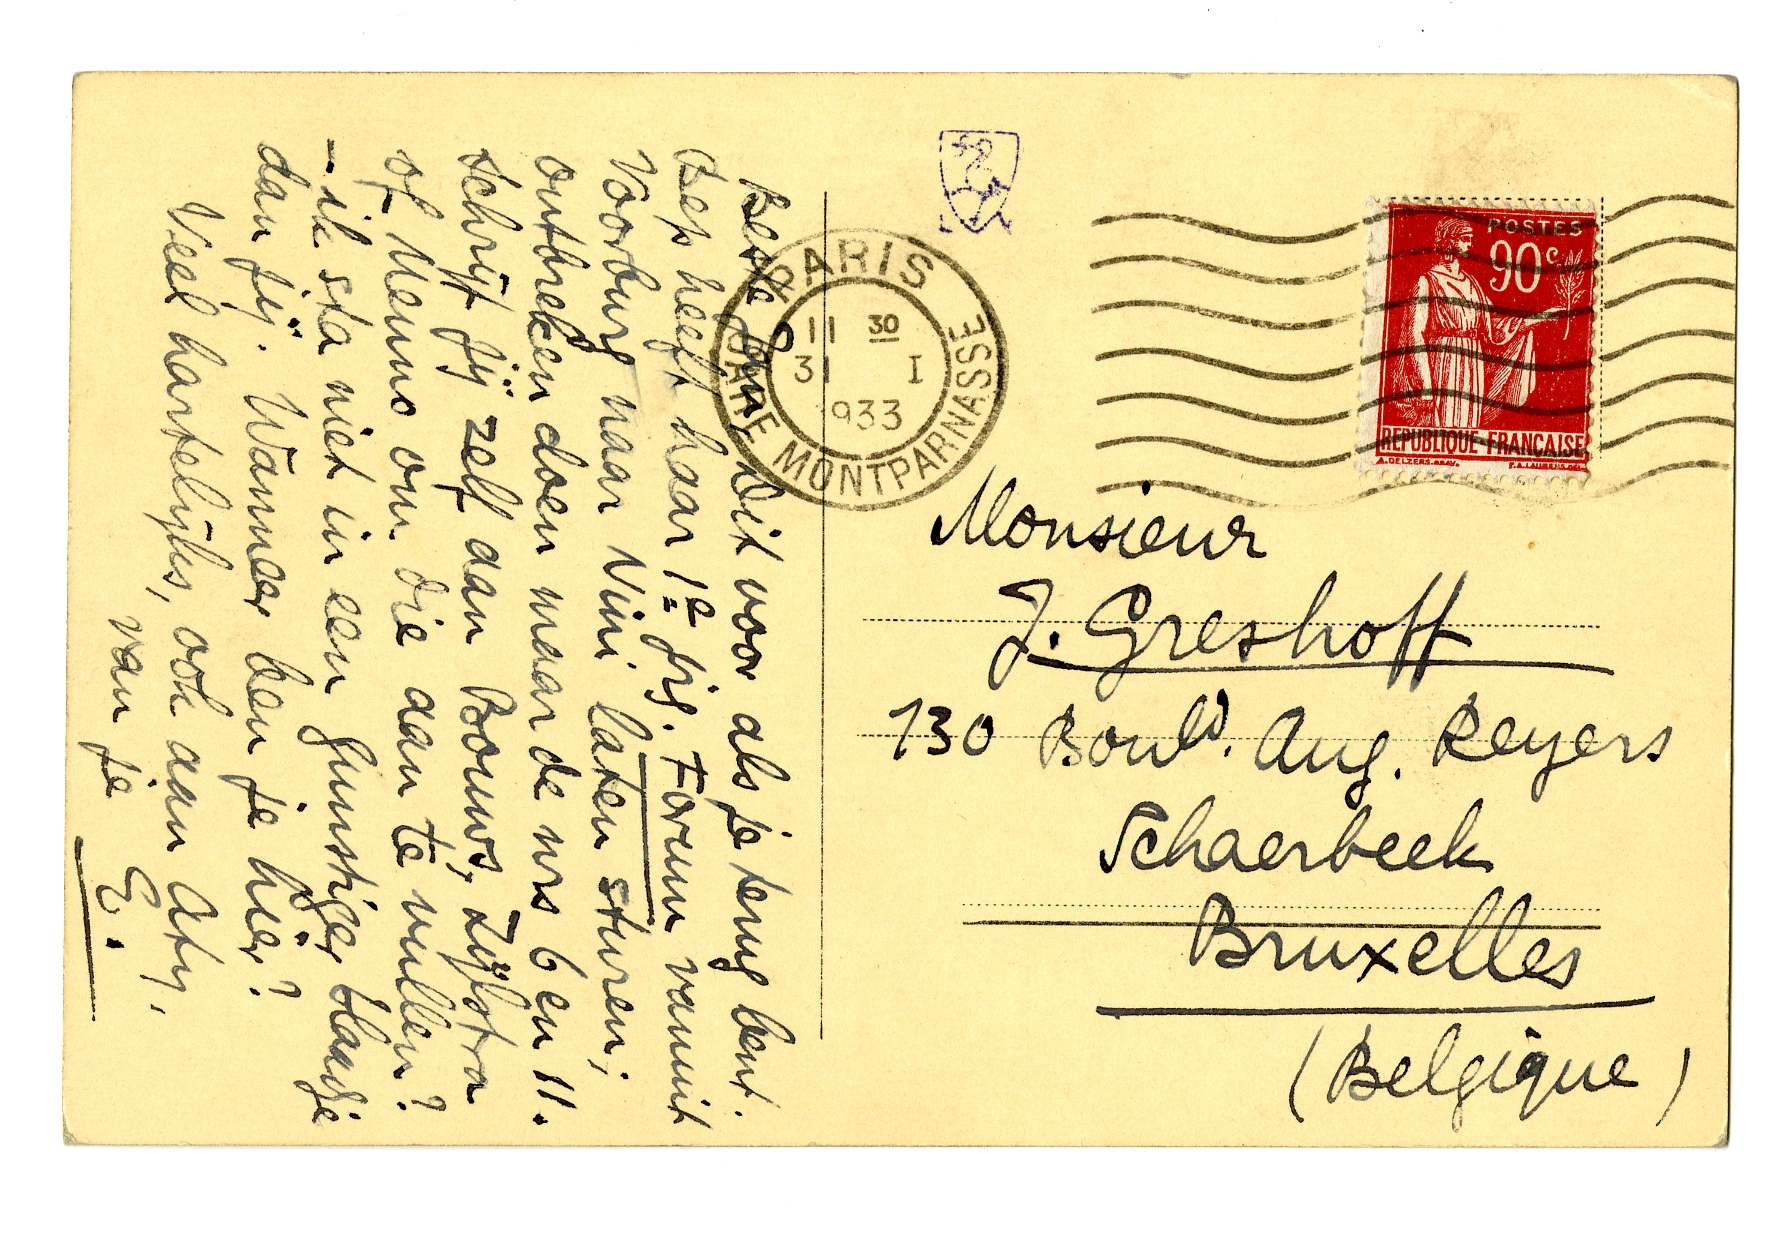 Beste Jan, Dit voor als je terug bent.
Bep heeft haar 1e jrg. Forum vanuit
Voorburg naar Viri laten sturen;
ontbreken doen maar de nrs 6 en 11.
Schrijf jij zelf aan Bouws, Zijlstra
of Menno om die aan te vullen?
- ik sta niet in een gunstiger blaadje
dan jij. Wanneer ben je hier?
Veel hartelijks, ook aan Aty,
van je
E.
PARIS
GARE MONTPARNASSE
11 30
31 I
1933
POSTES
90c
REPUBLIQUE FRANÇAISE
A. DELZERS. GRAV. P.A. LAURENS. DEL.
Monsieur
J. Greshoff
130 Bould. Aug. Reyers
Schaerbeek
Bruxelles
(Belgique)